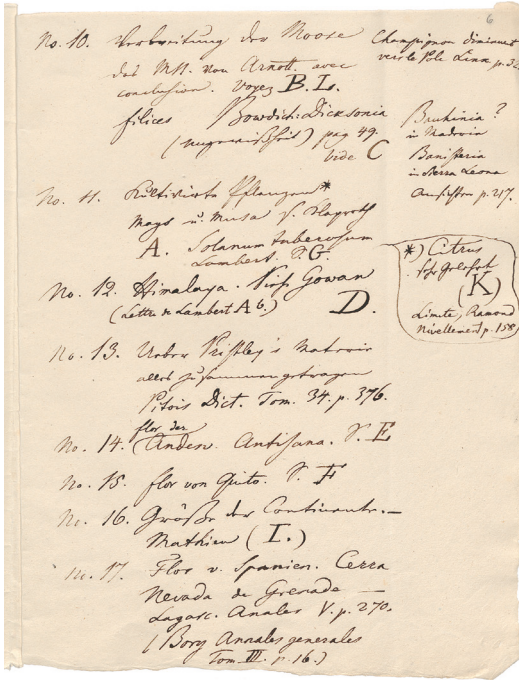 6
No. 10. Verbreitung der Moose
des MH. von Arnott. avec
conclusion. voyez B. L.
filices Bowdich: Dicksonia
(Ungewißheit) pag 49.
vide C
Champignon diminuent
vers le Pole Linn p. 32
Bauhinia ?
in Maderia
Banisteria
in Sierra Leona
Ansichten p. 217.
No. 11. Kultivirte Pflanzen *
Mays u. Musa s. Klaproth
A. Solanum tuberosum
Lambert. S. G.
*) Citrus
(K)
Limite, Ramond
Nivellement p. 158
No. 12. Himalaya. Gowan
(Lettre de Lambert A 6.) D.
No. 13. Ueber
alles zusammengetragen
Dict. Tom. 34. p. 376.
No. 14. flor der (Anden. Antisana. S. E
No. 15. flor von Quito. S. F
No. 16. Größe der Continente. —
Mathieu (I.)
No. 17. Flor v. Spanien. Cerra
Nevada de Grenade —
Lagasc. Anales V. p. 270.
(Bory Annales generales
Tom. III. p. 16.)